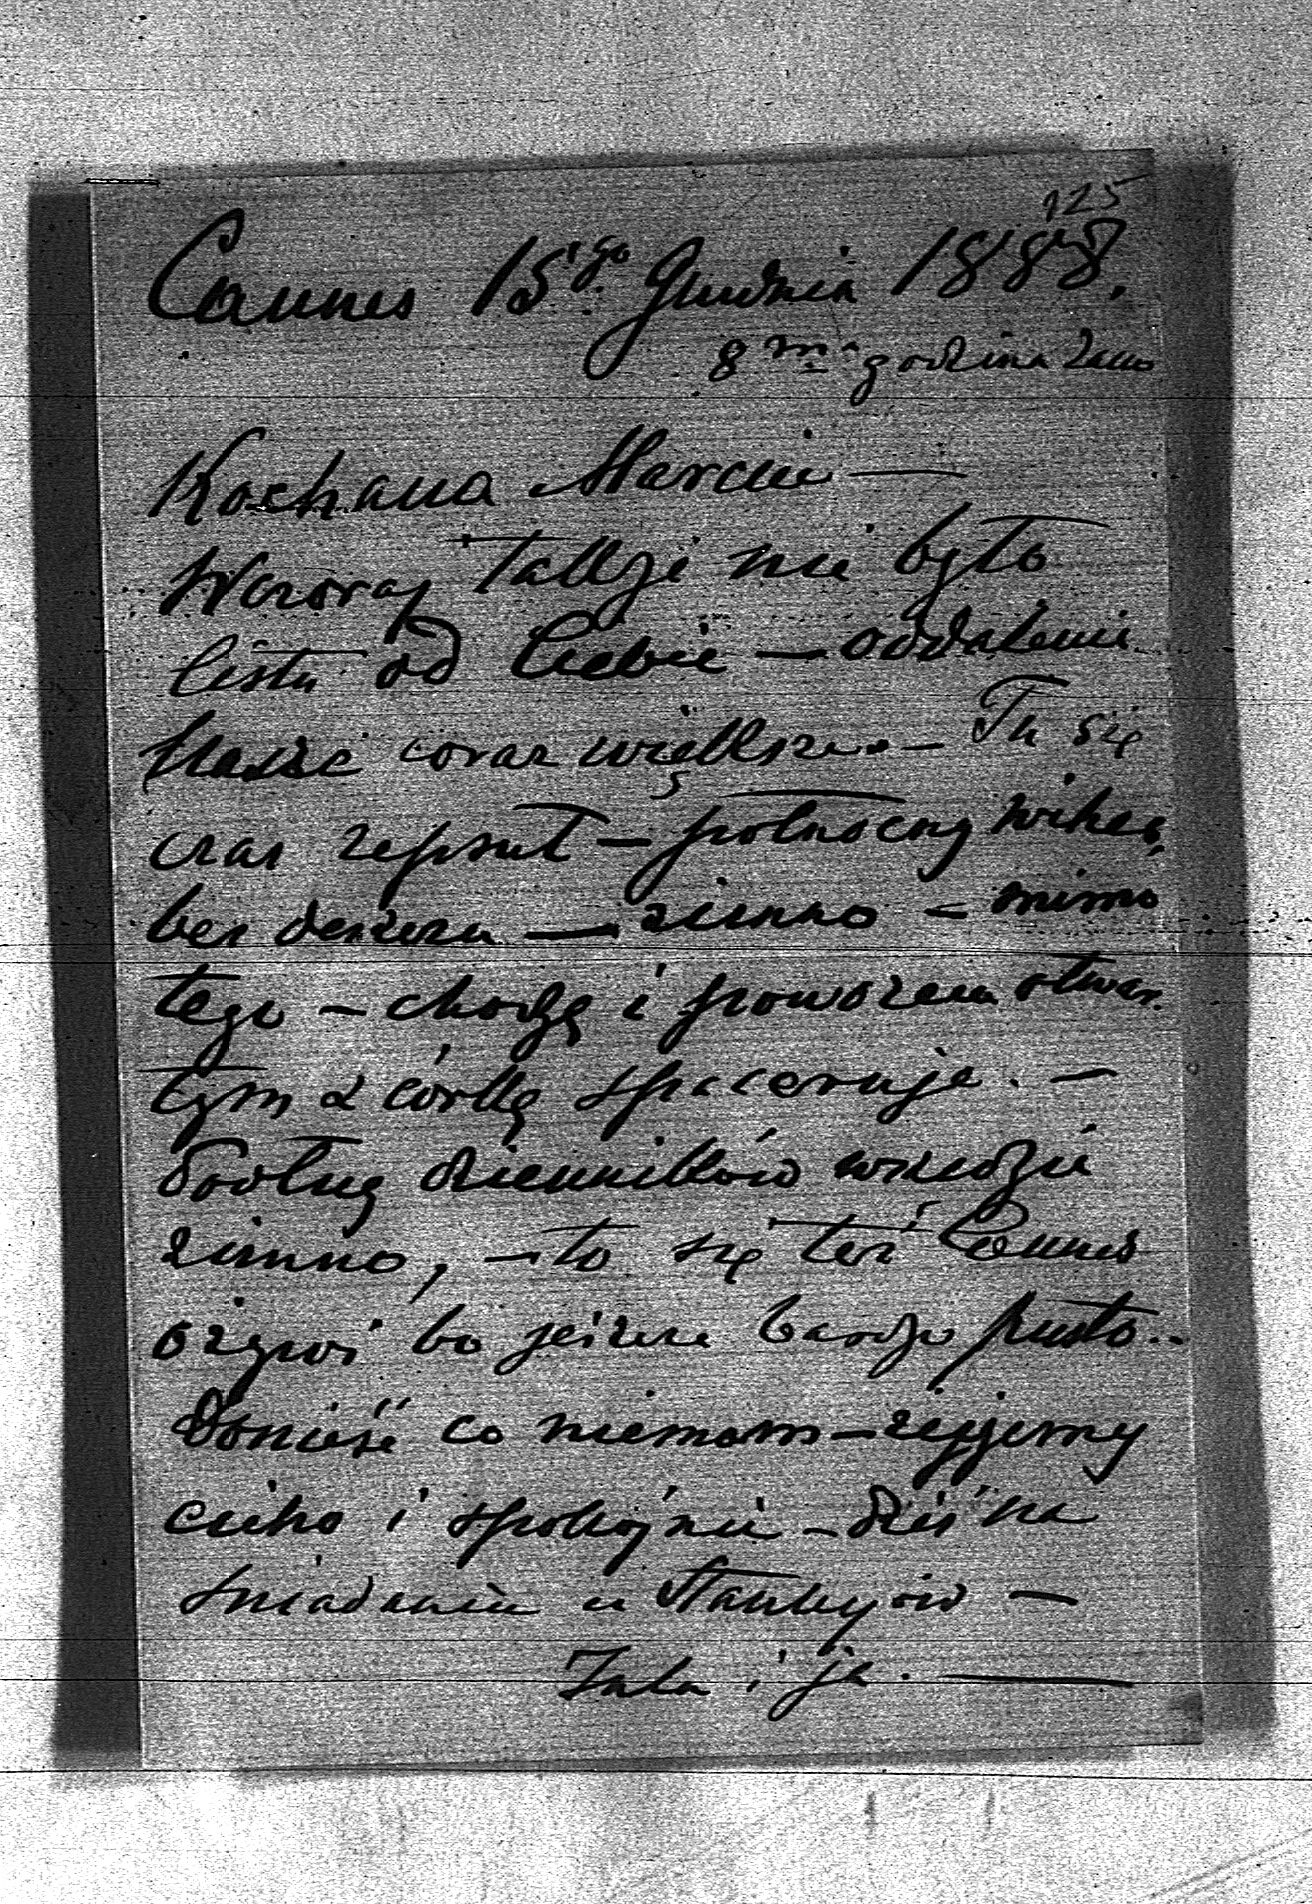 125
Cannes 15go Grudnia 1888.
8ma godzina rano
Kochana Marciu —
Wczoraj także nie było
listu od Ciebie — oddalenie
nasze coraz większe. — Tu się
czas zepsuł — północny wiher,
bez deszczu — zimno — mimo
tego — chodzę i powozem otwar-
tym z córką spaceruje. —
Podług dzienników wszędzie
zimno, — to się też Cannes
ożywi bo jeszcze bardzo pusto..
Donieść co niemam — żyjemy
cicho i spokojnie — dziś na
śniadaniu u Stanleyów —
i ja. —